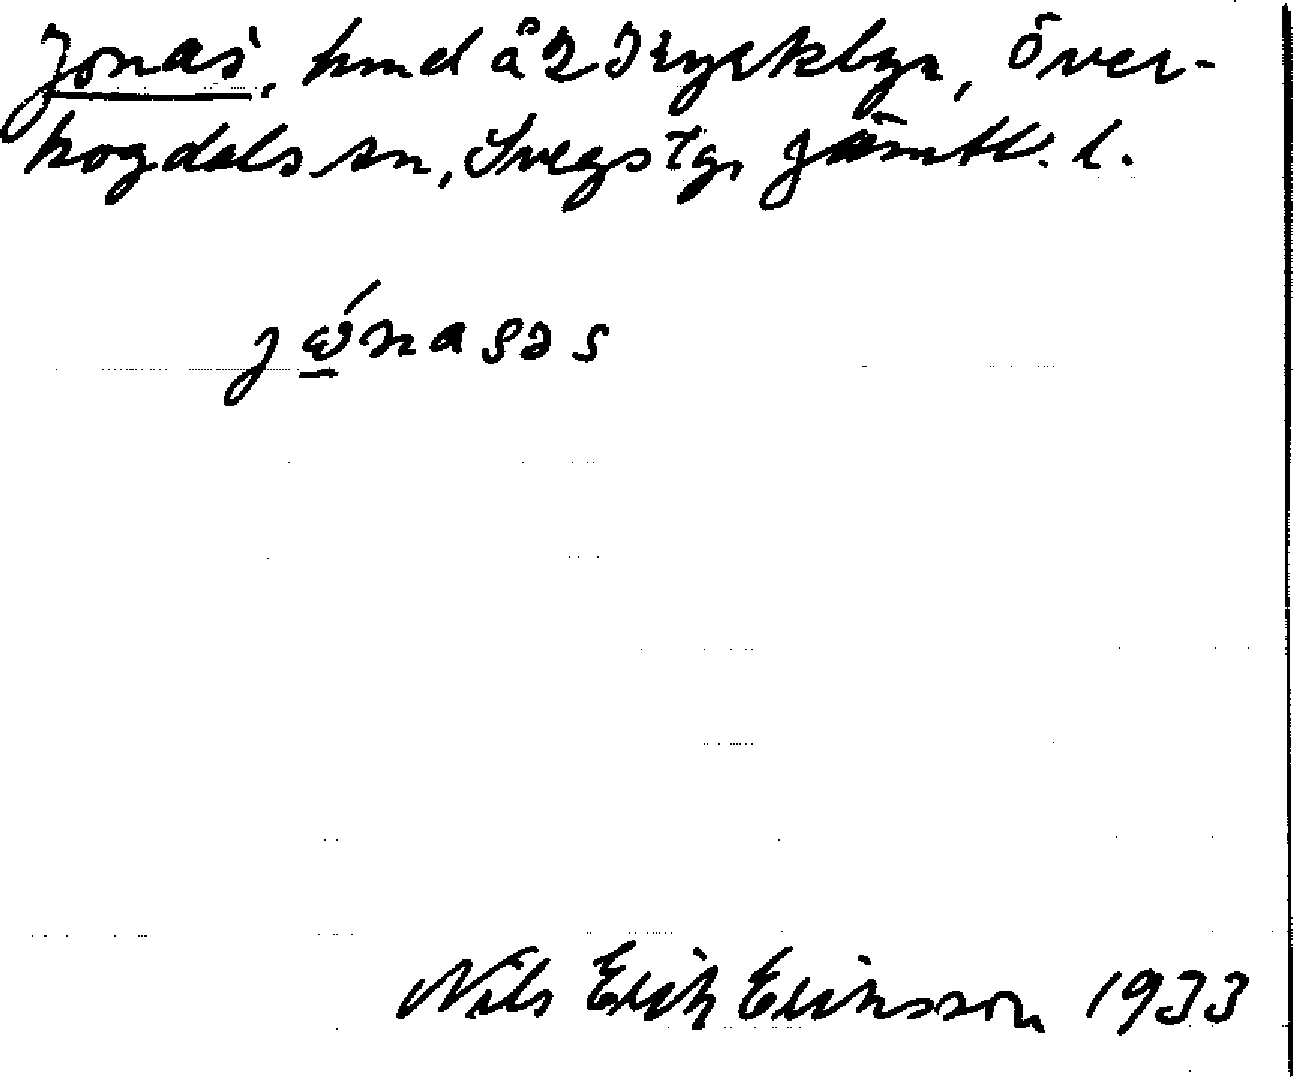 Jonas', hmd å 2 Tryckbyn, Över-
hogdals sn, Svegs tg, Jämtl. l.
jώnasəs
Nils Erik Eriksson 1933